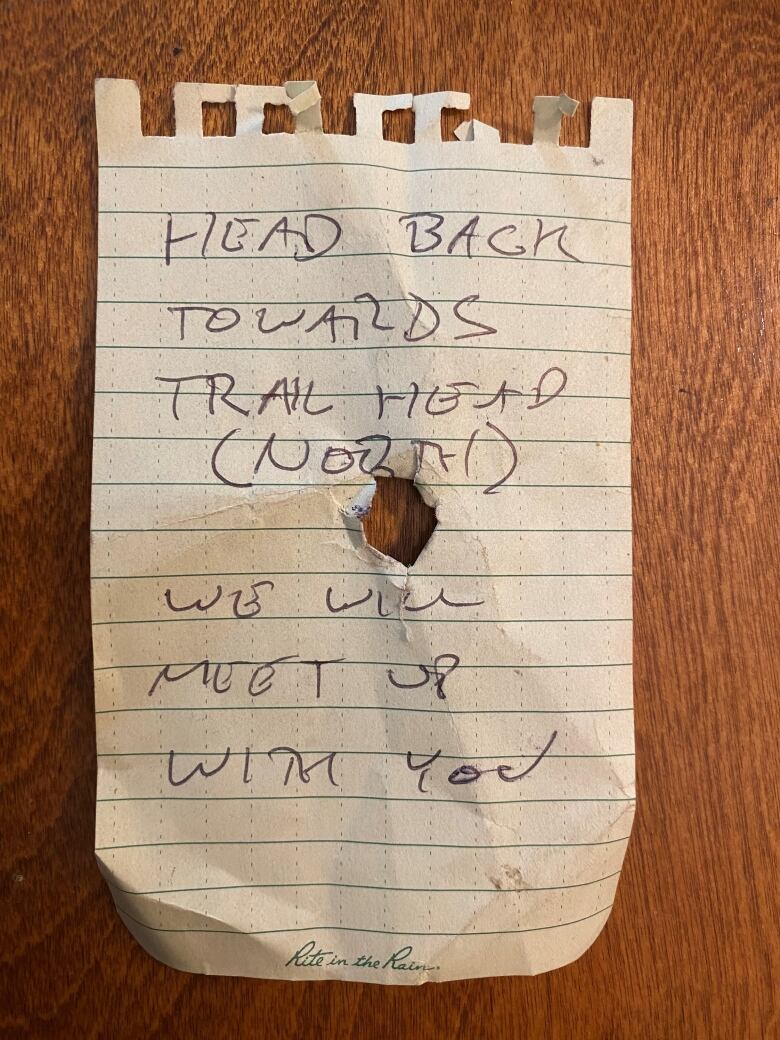 HEAD BACK
TOWARDS
TRAIL HEAD
(NORTH)
WE WILL
MEET UP
WITH YOU
Rite in the Rain.